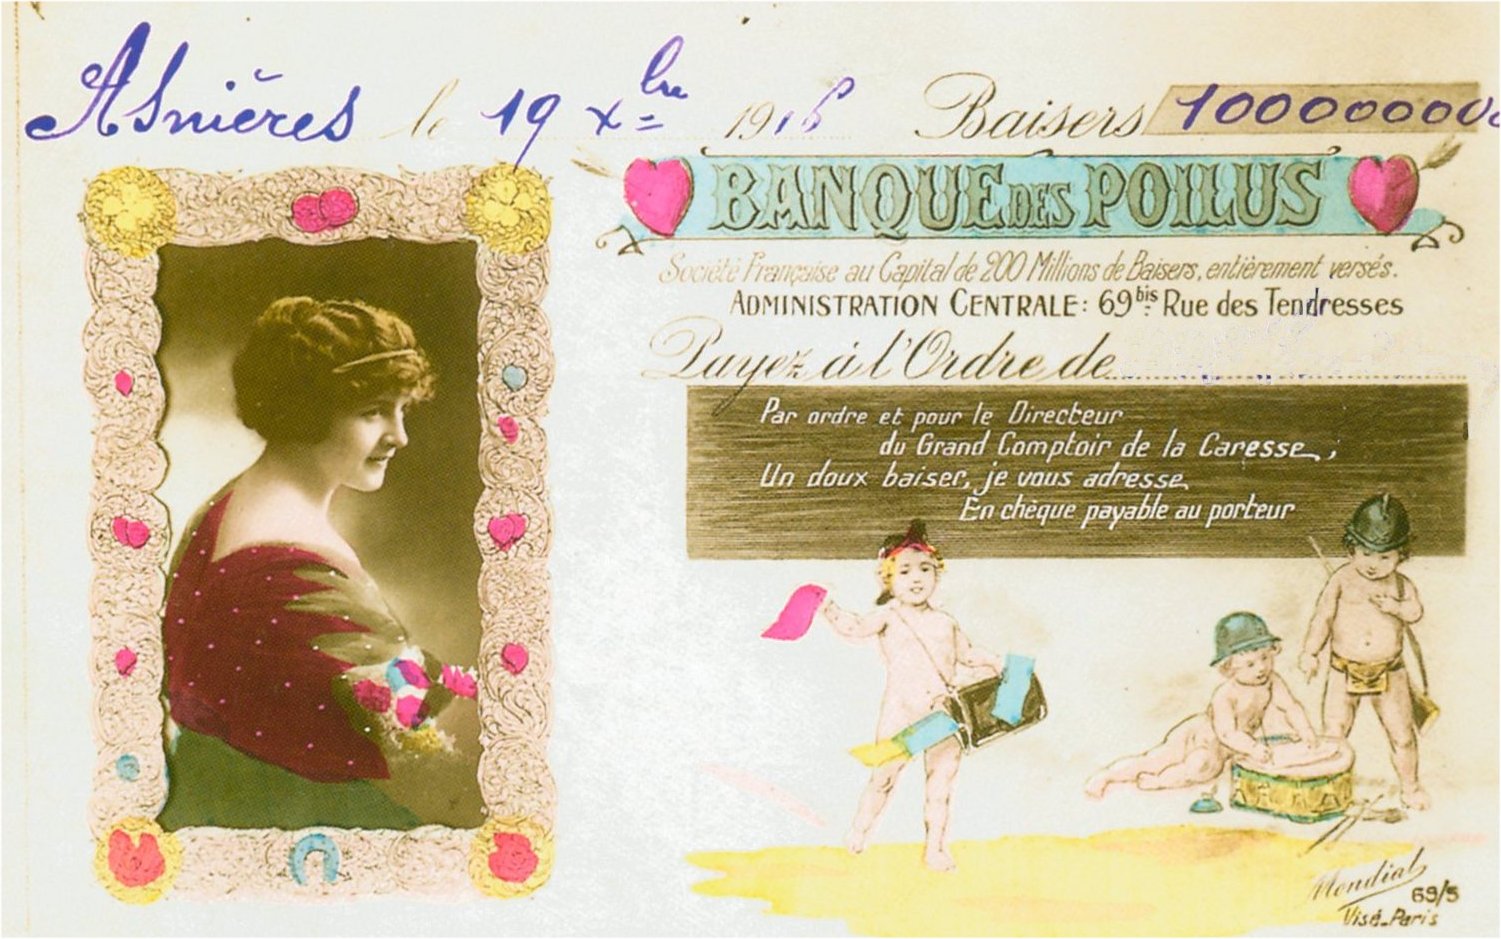 Asnières le 19 Xbre 1916 Baisers 1000000000
BANQUE DES POILUS
Société Française au Capital de 200 Millions de Baisers, entièrement versés.
ADMINISTRATION CENTRALE: 69bis Rue des Tendresses
Payez à l'Ordre de
Par ordre et pour le Directeur
du Grand Comptoir de la Caresse,
Un doux baiser, je vous adresse
En chèque payable au porteur
Mondial
69/5
Visé-Paris